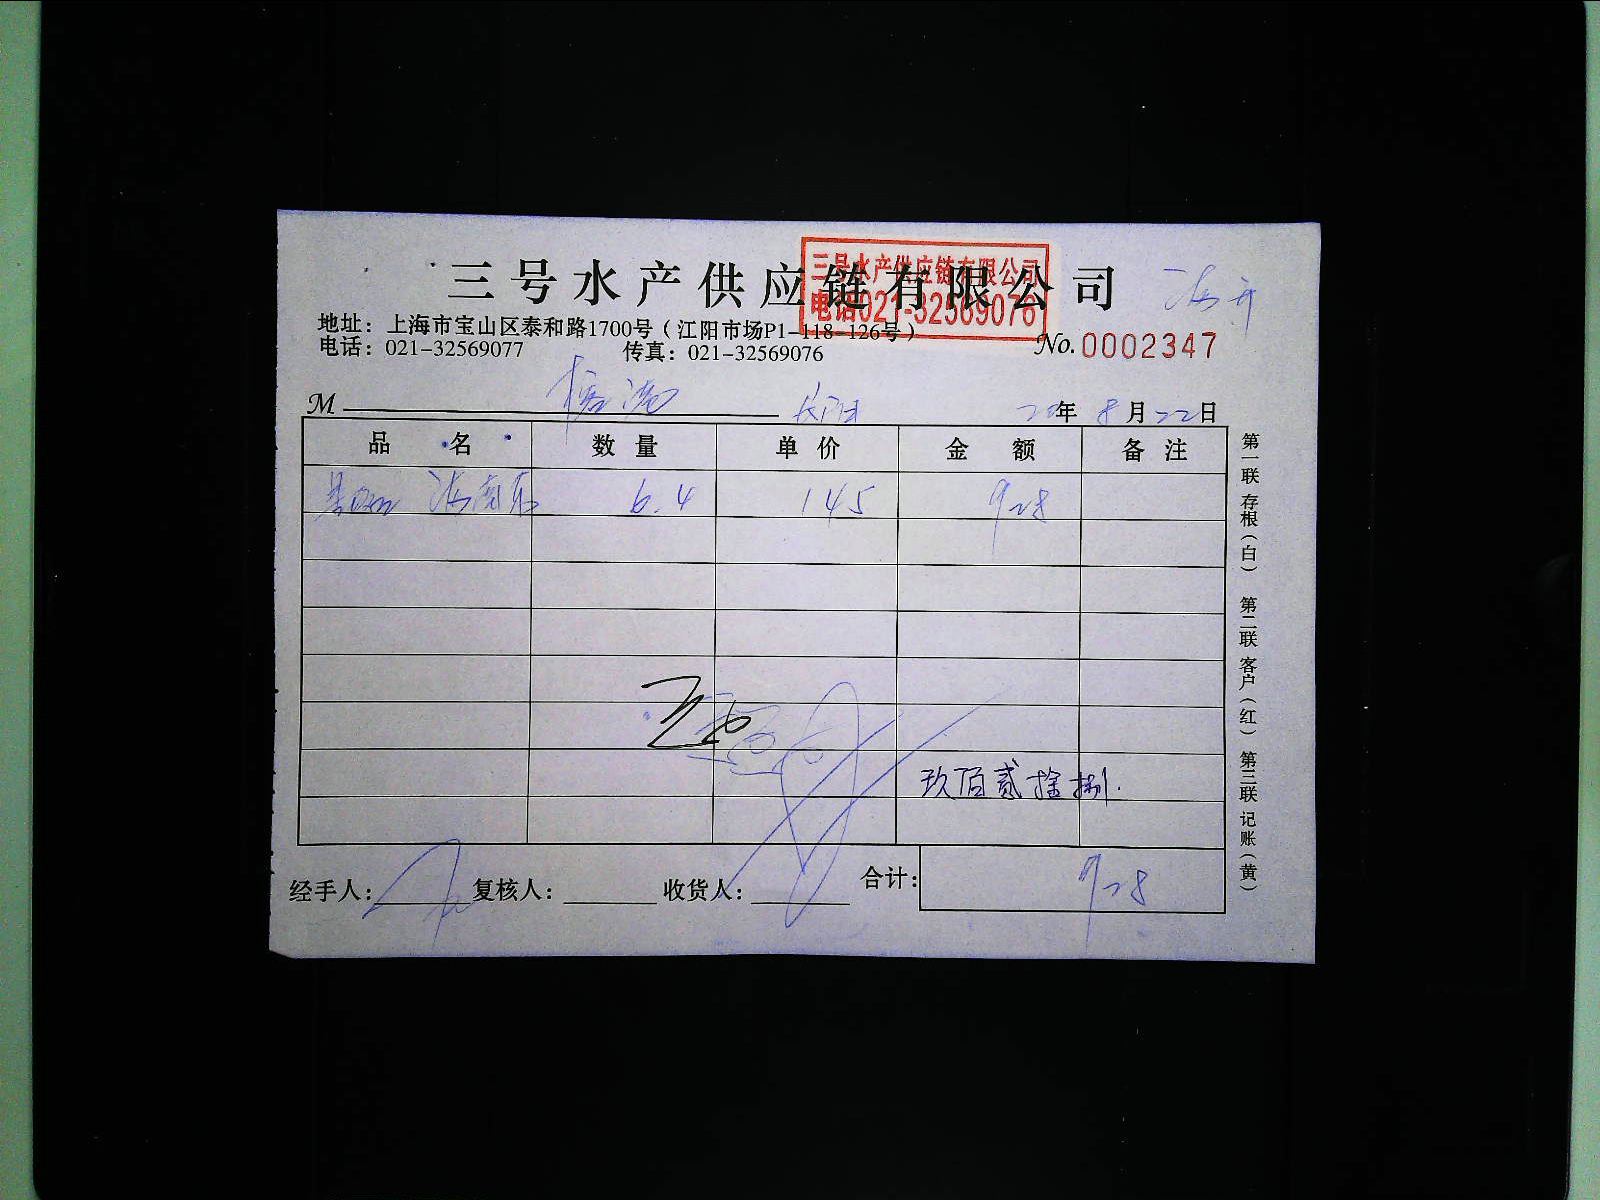 三号水产供应链有限公司
三号水产供应链有限公司
电话021-32569076
地址：上海市宝山区泰和路1700号（江阳市场P1-118-126号）
电话：021-32569077 传真：021-32569076
No. 0002347
M 20年8月22日
品名 数量 单价 金额 备注
海南东 6.4 145 928
玖佰贰拾捌
经手人： 复核人： 收货人： 合计： 928
第一联 存根（白） 第二联 客户（红） 第三联 记账（黄）